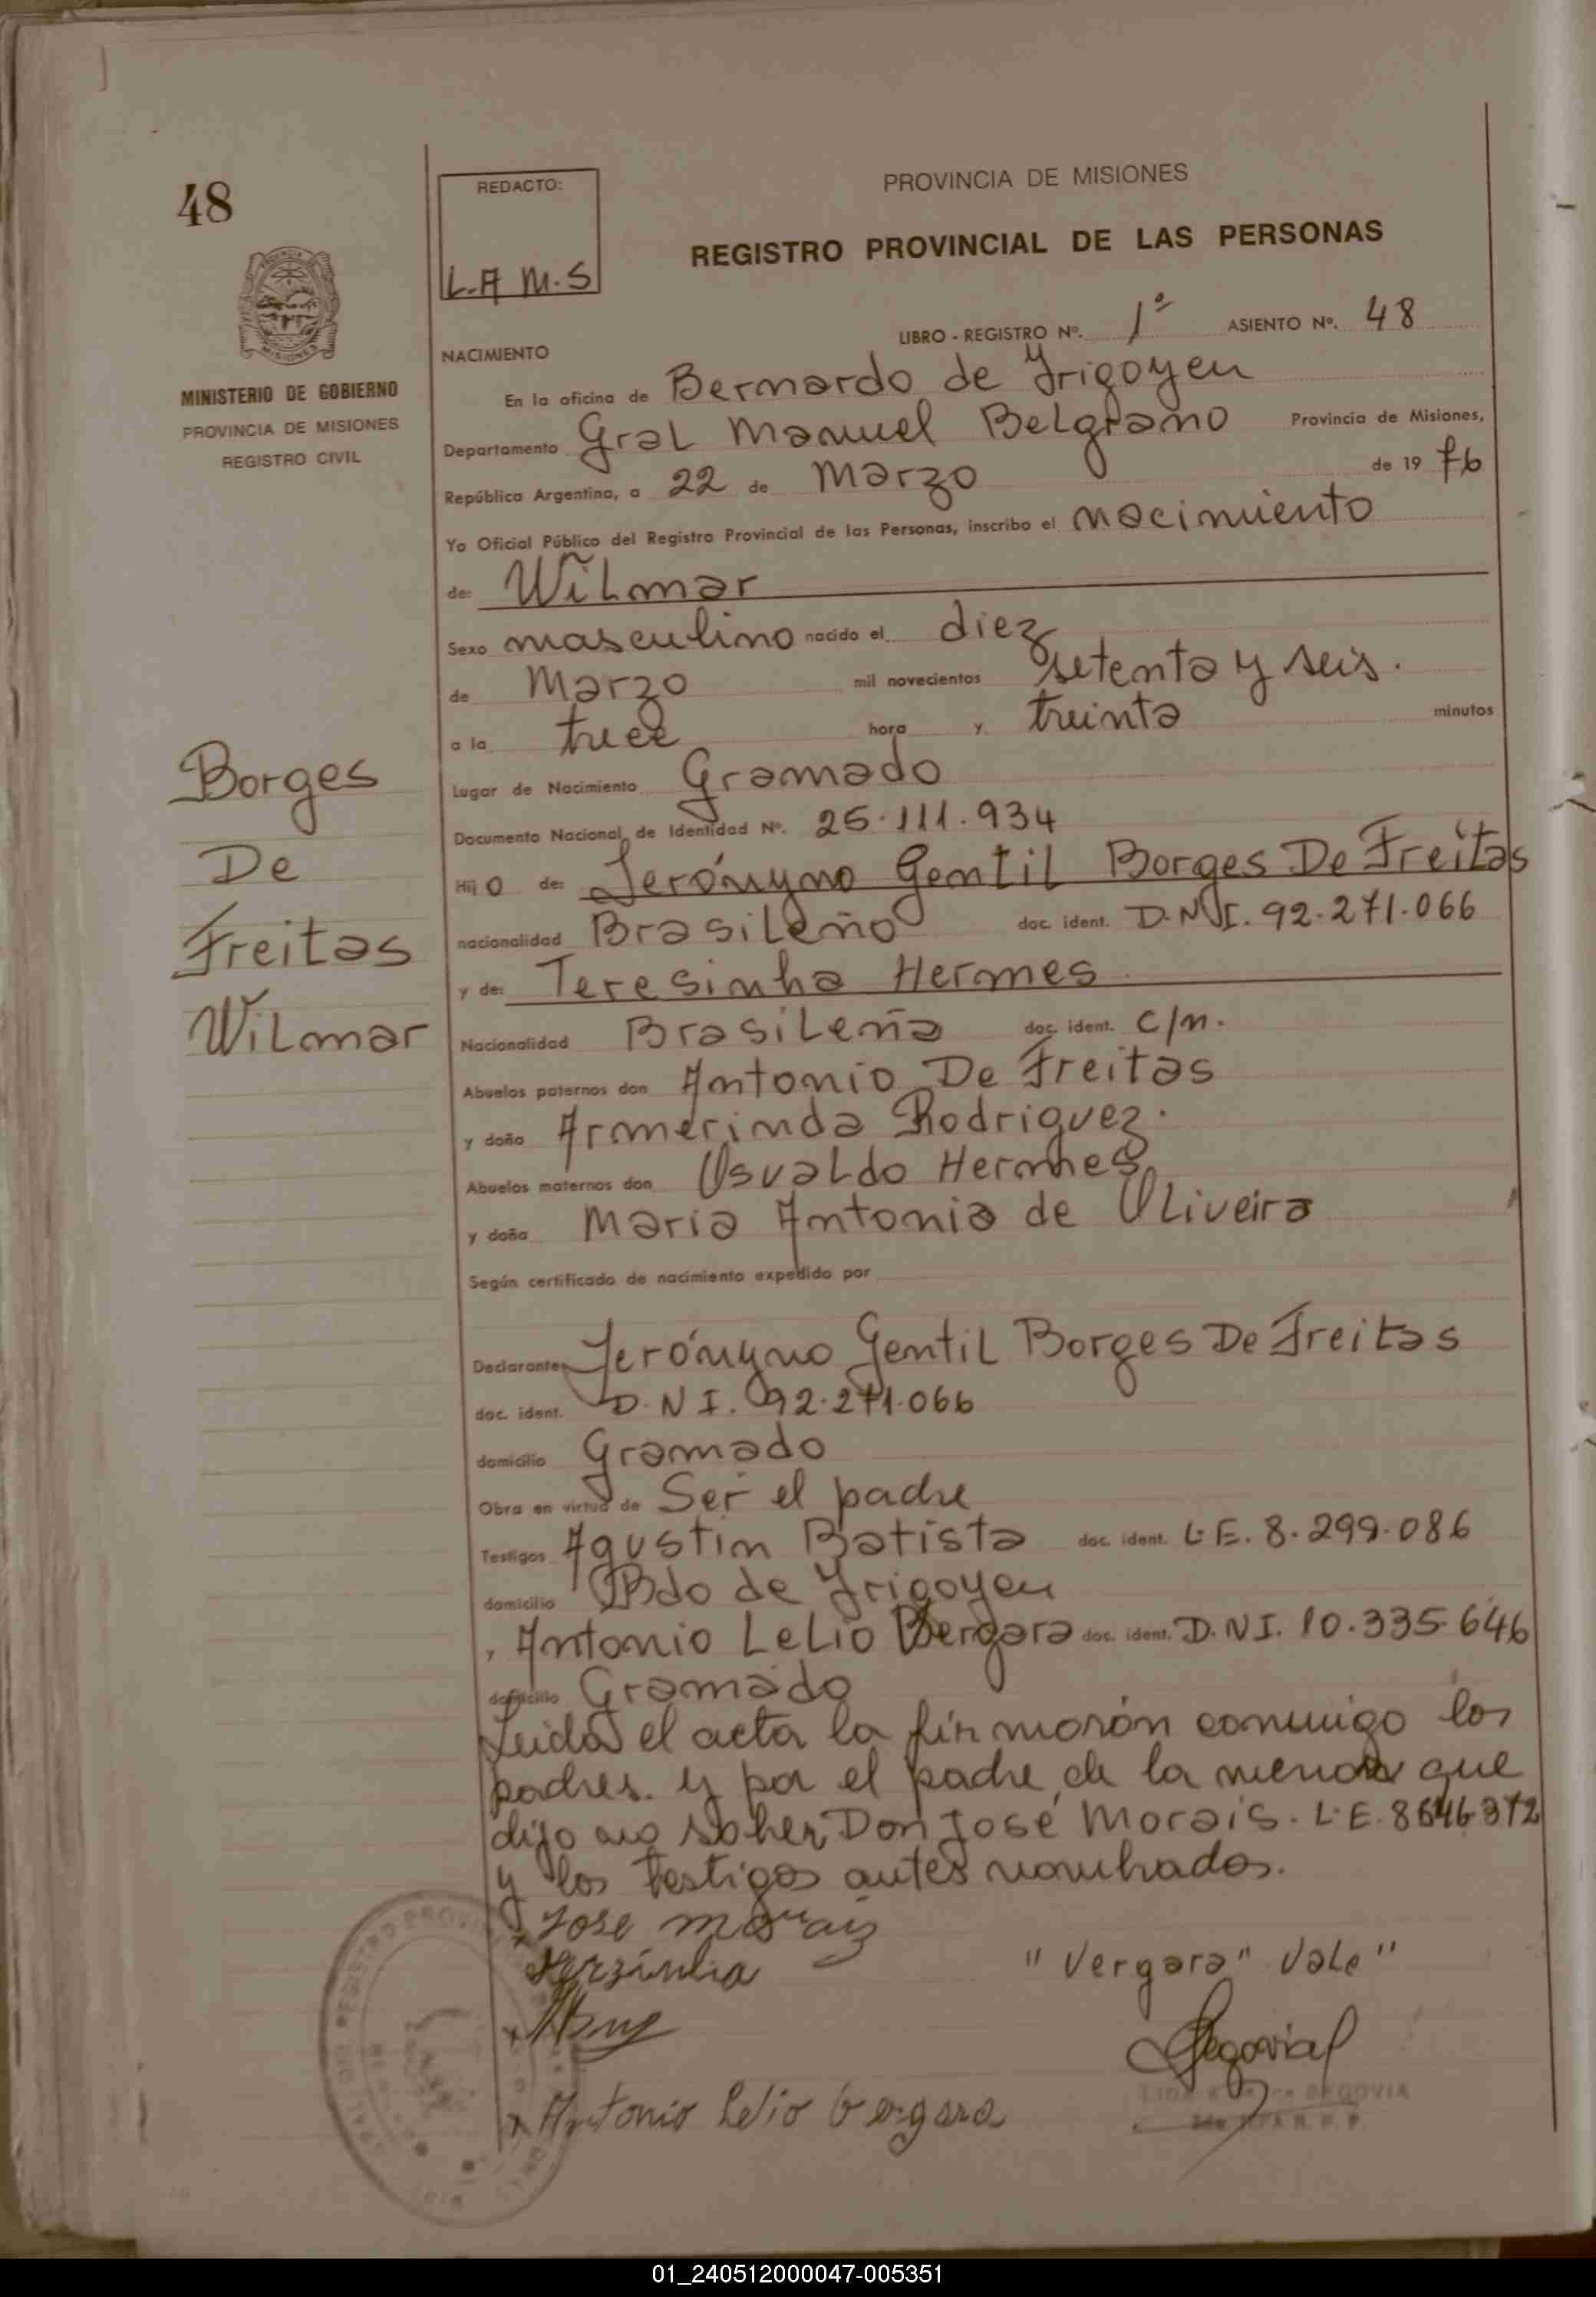 48
MINISTERIO DE GOBIERNO
PROVINCIA DE MISIONES
REGISTRO CIVIL
REDACTO:
L.A M.S
PROVINCIA DE MISIONES
REGISTRO PROVINCIAL DE LAS PERSONAS
LIBRO - REGISTRO Nº. 1º ASIENTO Nº. 48
NACIMIENTO
En la oficina de Bernardo de Irigoyen
Departamento Gral Manuel Belgrano Provincia de Misiones,
República Argentina, a 22 de Marzo de 19 76
Yo Oficial Público del Registro Provincial de las Personas, inscribo el nacimiento
de: Wilmar
Sexo masculino nacido el diez
de Marzo mil novecientos setenta y seis.
a la trece hora y treinta minutos
Lugar de Nacimiento Gramado
Documento Nacional de Identidad Nº. 25.111.934
Hij o de: Jerónymo Gentil Borges De Freitas
nacionalidad Brasileño doc. ident. D.N.I. 92.271.066
y de: Teresinha Hermes
Nacionalidad Brasileña doc. ident. C/n.
Abuelos paternos don Antonio De Freitas
y doña Armerinda Rodriguez.
Abuelos maternos don Osvaldo Hermes
y doña Maria Antonia de Oliveira
Según certificado de nacimiento expedido por
Declarante Jerónymo Gentil Borges De Freitas
doc. ident. D.N I. 92.271.066
domicilio Gramado
Obra en virtud de Ser el padre
Testigos Agustin Batista doc. ident. L.E. 8.299.086
domicilio Bdo de Irigoyen
y Antonio Lelio Bergara doc. ident. D.NI. 10.335.646
domicilio Gramado
Leida el acta la firmarón conmigo los
padres. y por el padre de la menor que
dijo no saber Don José Morais. L.E. 8646372
y los testigos antes nombrados.
Borges
De
Freitas
Wilmar
Jose Moraiz
Terzinha
"Vergara" Vale"
Segovia
Antonio Lelio Vergara
SEGOVIA
REGISTRO PROVI
01_240512000047-005351